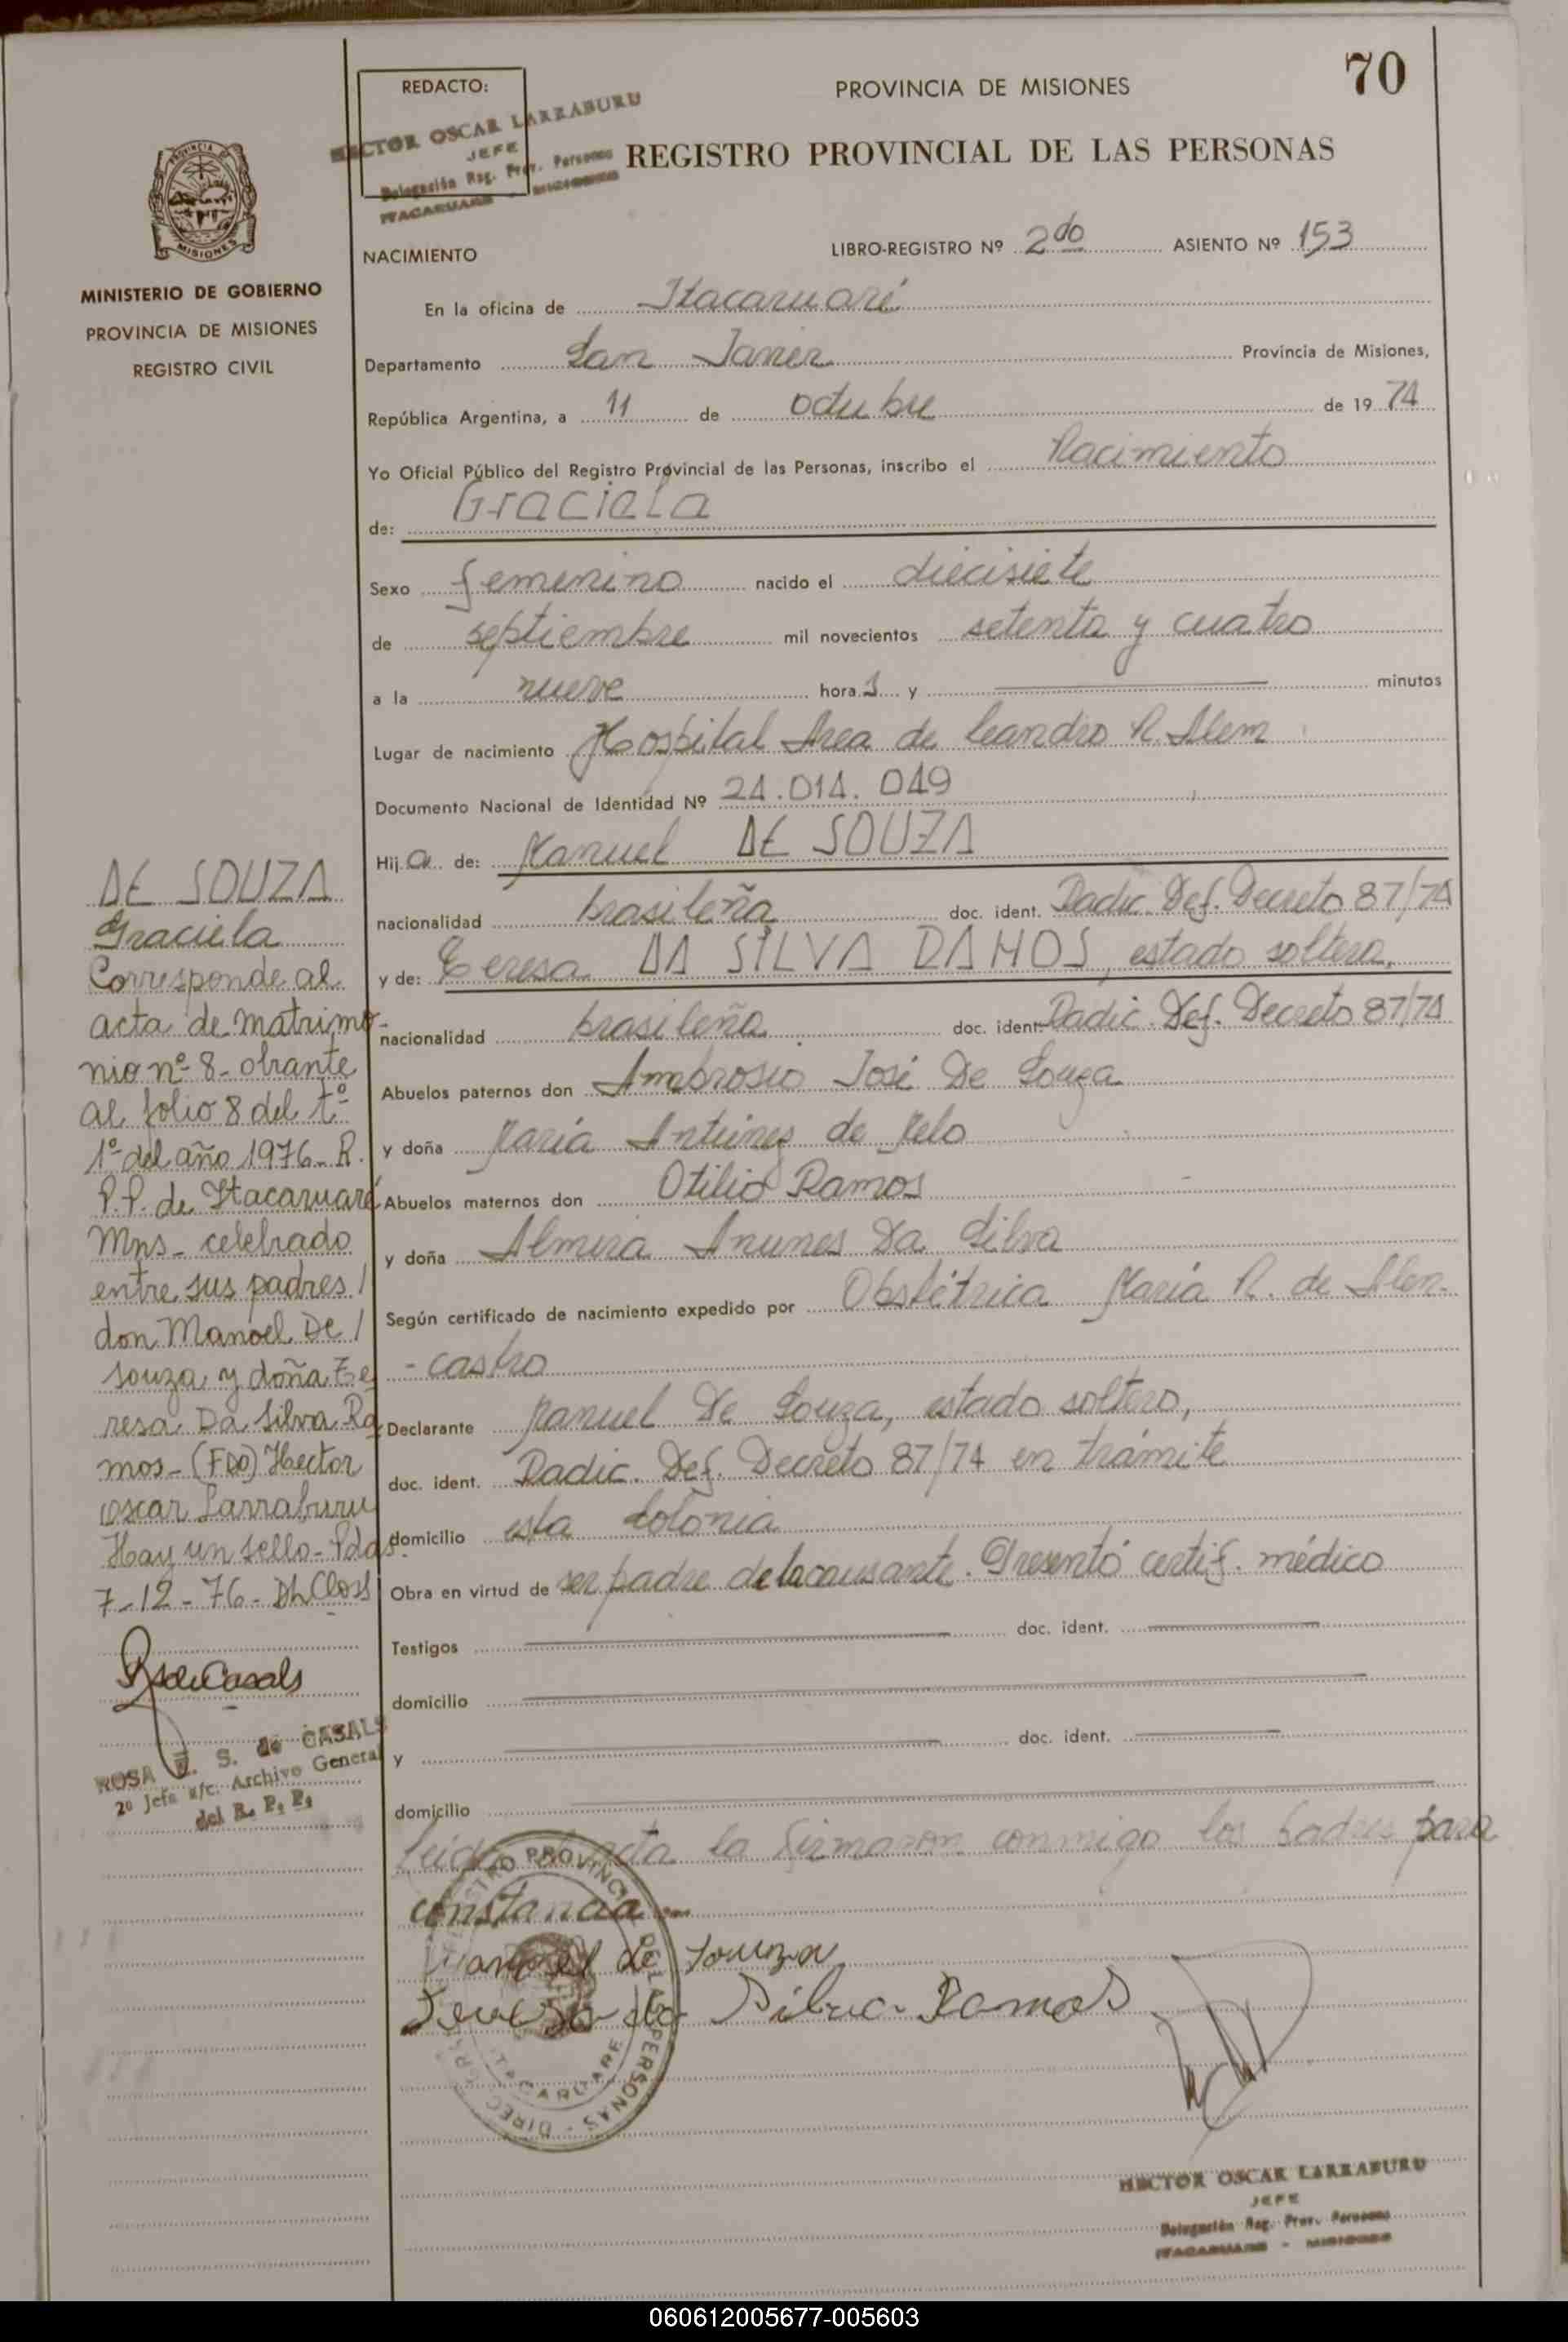 70
REDACTO:
HECTOR OSCAR LARRABURU
JEFE
Delegación Reg. Prov. Personas
ITACARUARE - MISIONES
PROVINCIA DE MISIONES
REGISTRO PROVINCIAL DE LAS PERSONAS
PROVINCIA DE
MISIONES
MINISTERIO DE GOBIERNO
PROVINCIA DE MISIONES
REGISTRO CIVIL
NACIMIENTO
LIBRO-REGISTRO Nº 2do ASIENTO Nº 153
En la oficina de Itacaruaré
Departamento San Javier Provincia de Misiones,
República Argentina, a 11 de octubre de 1974
Yo Oficial Público del Registro Provincial de las Personas, inscribo el Nacimiento
de: Graciela
Sexo femenino nacido el diecisiete
de septiembre mil novecientos setenta y cuatro
a la nueve hora s y minutos
Lugar de nacimiento Hospital Area de Leandro N. Alem
Documento Nacional de Identidad Nº 24.014.049
Hij a de: Manuel DE SOUZA
nacionalidad brasileña doc. ident. Radic. Def. Decreto 87/74
y de: Teresa DA SILVA RAMOS, estado soltera.
nacionalidad brasileña doc. ident. Radic. Def. Decreto 87/74
Abuelos paternos don Ambrosio José De Souza
y doña María Antunes de Melo
Abuelos maternos don Otilio Ramos
y doña Almira Anunes Da Silva
Según certificado de nacimiento expedido por Obstétrica María R. de Alen-
-castro
Declarante Manuel De Souza, estado soltero,
doc. ident. Radic. Def. Decreto 87/74 en trámite
domicilio esta Colonia
Obra en virtud de ser padre de la causante. Presentó certif. médico
Testigos doc. ident.
domicilio
y doc. ident.
domicilio
Leída el acta la firmaron conmigo los padres para
constancia
Manoel de Souza
Teresa da Silva Ramos
REGISTRO PROVINCIAL DE LAS PERSONAS - DIREC
ITACARUARE
HECTOR OSCAR LARRABURU
JEFE
Delegación Reg. Prov. Personas
ITACARUARE - MISIONES
DE SOUZA
Graciela
Corresponde al
acta de matrimo-
nio nº 8- obrante
al folio 8 del tº
1º del año 1976- R.
P.P. de Itacaruaré
Mns- celebrado
entre sus padres/
don Manoel De/
Souza y doña Te
resa Da Silva Ra
mos- (FDO) Hector
Oscar Larraburu
Hay un sello- Pdas.
7-12-76- Closs
R S de Casals
ROSA E. S. de CASALS
2º Jefe a/c. Archivo General
del R. P. P.
060612005677-005603